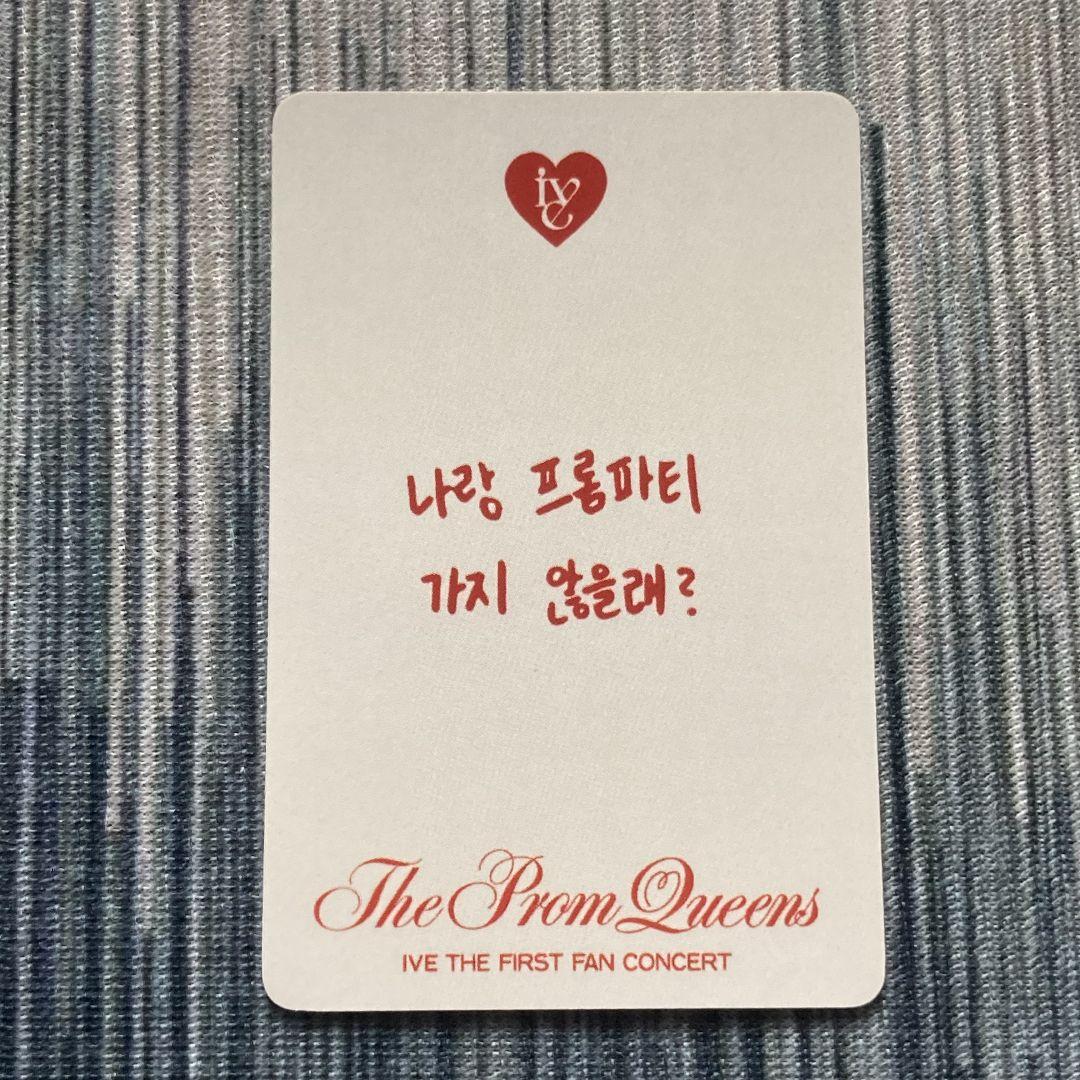 ive
나랑 프롬파티
가지 않을래?
The Prom Queens
IVE THE FIRST FAN CONCERT